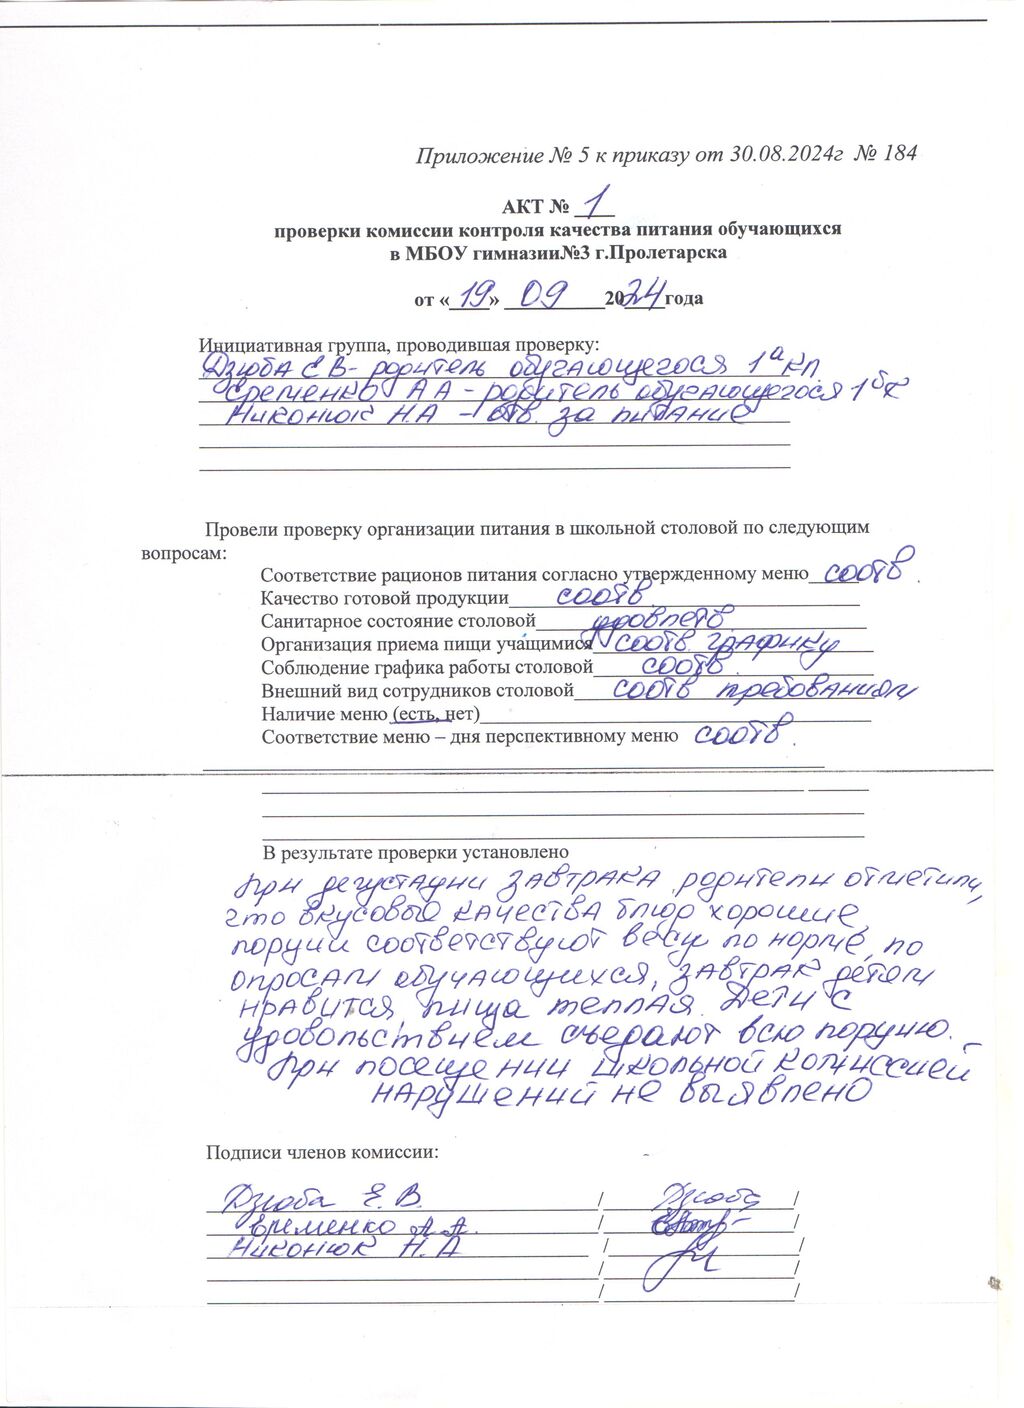 Приложение № 5 к приказу от 30.08.2024г № 184
АКТ № 1
проверки комиссии контроля качества питания обучающихся
в МБОУ гимназии№3 г.Пролетарска
от «19» 09 2024 года
Инициативная группа, проводившая проверку:
Дзюба Е В - родитель обучающегося 1а кл.
Еременко А А - родитель обучающегося 1б к
Никонюк Н.А - отв. за питание
Провели проверку организации питания в школьной столовой по следующим
вопросам:
Соответствие рационов питания согласно утвержденному меню соотв.
Качество готовой продукции соотв.
Санитарное состояние столовой удовлетв.
Организация приема пищи учащимися соотв. графику
Соблюдение графика работы столовой соотв.
Внешний вид сотрудников столовой соотв требованиям
Наличие меню (есть, нет)
Соответствие меню – дня перспективному меню соотв.
В результате проверки установлено
При дегустации завтрака родители отметили,
что вкусовые качества блюд хорошие,
порции соответствуют весу по норме, по
опросам обучающихся, завтрак детям
нравится, пища теплая. Дети с
удовольствием съедают всю порцию.
При посещении школьной комиссией
нарушений не выявлено
Подписи членов комиссии:
Дзюба Е. В. / Дзюба /
Еременко А.А. / /
Никонюк Н.А / /
/ /
/ /